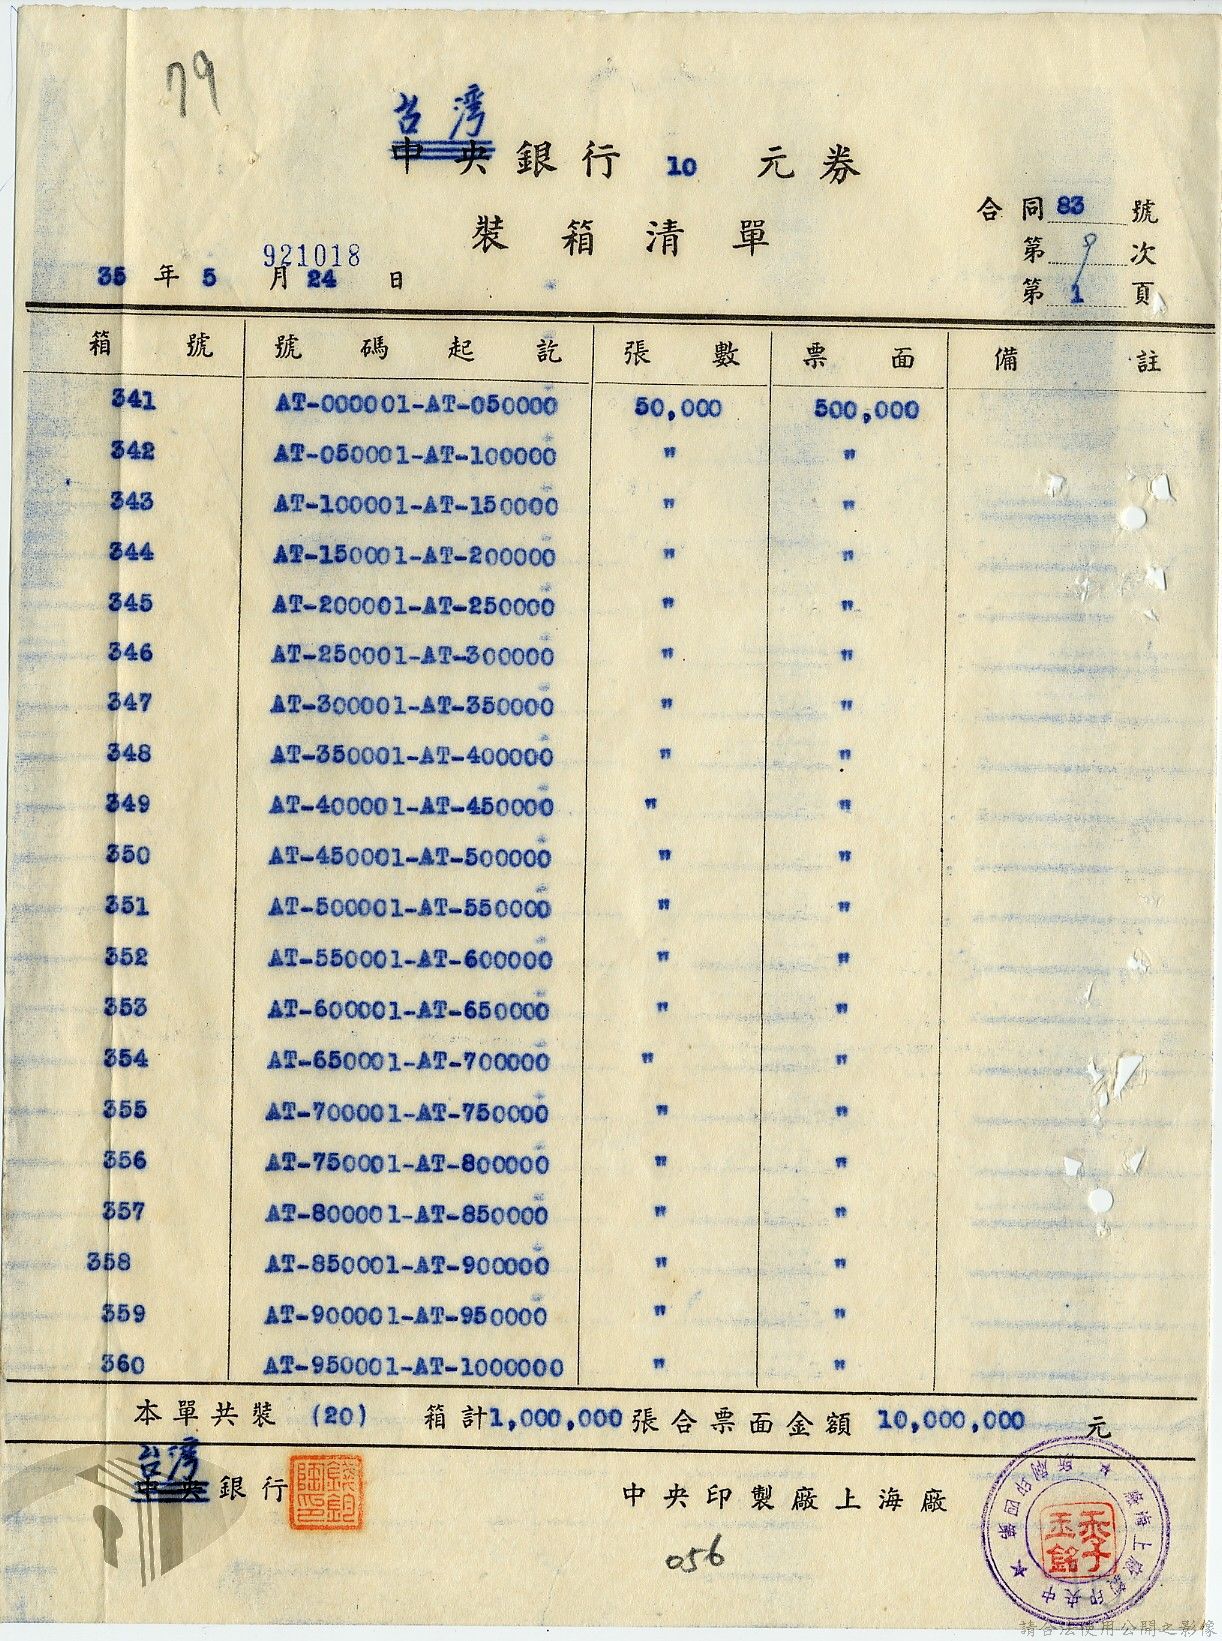 79
台灣
中央銀行 10 元券
裝箱清單
合同 83 號
第 9 次
第 1 頁
921018
35 年 5 月 24 日
箱號 號碼起訖 張數 票面 備註
341 AT-000001-AT-050000 50,000 500,000
342 AT-050001-AT-100000 " "
343 AT-100001-AT-150000 " "
344 AT-150001-AT-200000 " "
345 AT-200001-AT-250000 " "
346 AT-250001-AT-300000 " "
347 AT-300001-AT-350000 " "
348 AT-350001-AT-400000 " "
349 AT-400001-AT-450000 " "
350 AT-450001-AT-500000 " "
351 AT-500001-AT-550000 " "
352 AT-550001-AT-600000 " "
353 AT-600001-AT-650000 " "
354 AT-650001-AT-700000 " "
355 AT-700001-AT-750000 " "
356 AT-750001-AT-800000 " "
357 AT-800001-AT-850000 " "
358 AT-850001-AT-900000 " "
359 AT-900001-AT-950000 " "
360 AT-950001-AT-1000000 " "
本單共裝 (20) 箱計1,000,000張合票面金額 10,000,000 元
台灣
中央銀行
中央印製廠上海廠
056
請合法使用公開之影像